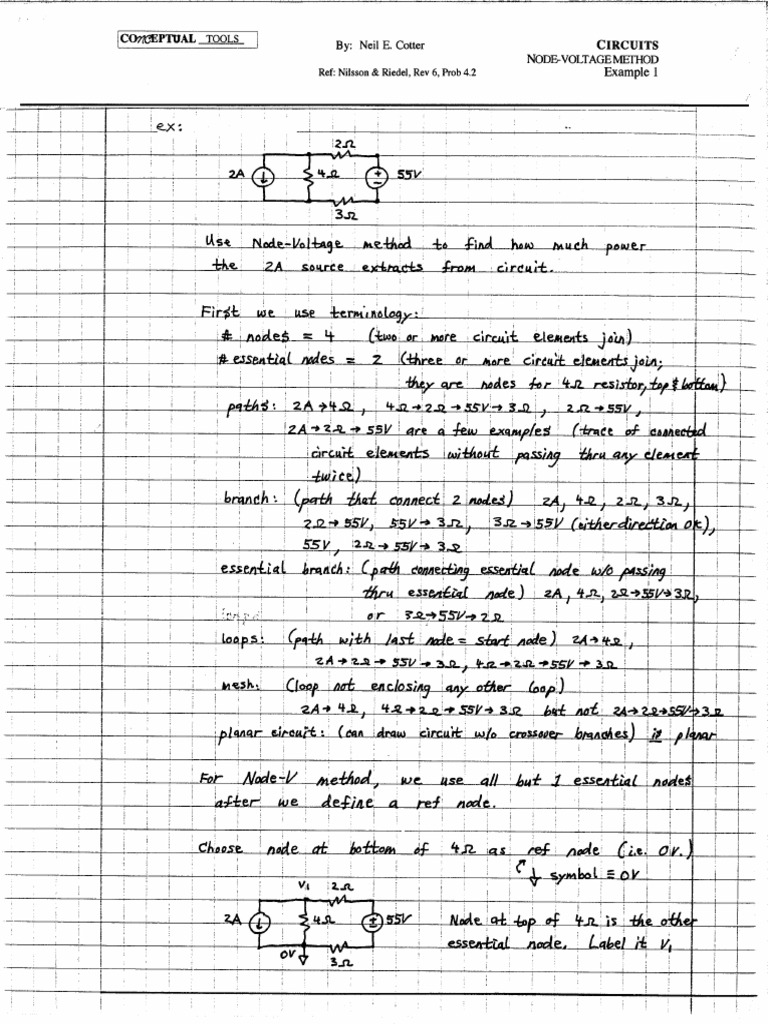 CONCEPTUAL TOOLS
By: Neil E. Cotter
CIRCUITS
NODE-VOLTAGE METHOD
Ref: Nilsson & Riedel, Rev 6, Prob 4.2
Example 1
ex:
2Ω
2A
4Ω
+
-
55V
3Ω
Use Node-Voltage method to find how much power
the 2A source extracts from circuit.
First we use terminology:
# nodes = 4 (two or more circuit elements join)
# essential nodes = 2 (three or more circuit elements join;
they are nodes for 4Ω resistor, top & bottom)
paths: 2A→4Ω, 4Ω→2Ω→55V→3Ω, 2Ω→55V,
2A→2Ω→55V are a few examples (trace of connected
circuit elements without passing thru any element
twice)
branch: (path that connect 2 nodes) 2A, 4Ω, 2Ω, 3Ω,
2Ω→55V, 55V→3Ω, 3Ω→55V (either direction ok),
55V, 2Ω→55V→3Ω
essential branch: (path connecting essential node w/o passing
thru essential node) 2A, 4Ω, 2Ω→55V→3Ω,
or 3Ω→55V→2Ω
loops: (path with last node = start node) 2A→4Ω,
2A→2Ω→55V→3Ω, 4Ω→2Ω→55V→3Ω
mesh: (loop not enclosing any other loop)
2A→4Ω, 4Ω→2Ω→55V→3Ω but not 2A→2Ω→55V→3Ω
planar circuit: (can draw circuit w/o crossover branches) is planar
For Node-V method, we use all but 1 essential nodes
after we define a ref node.
Choose node at bottom of 4Ω as ref node (i.e. 0V.)
symbol ≡ 0V
V₁ 2Ω
2A
4Ω
+
-
55V
Node at top of 4Ω is the other
essential node. Label it V₁
0V
3Ω